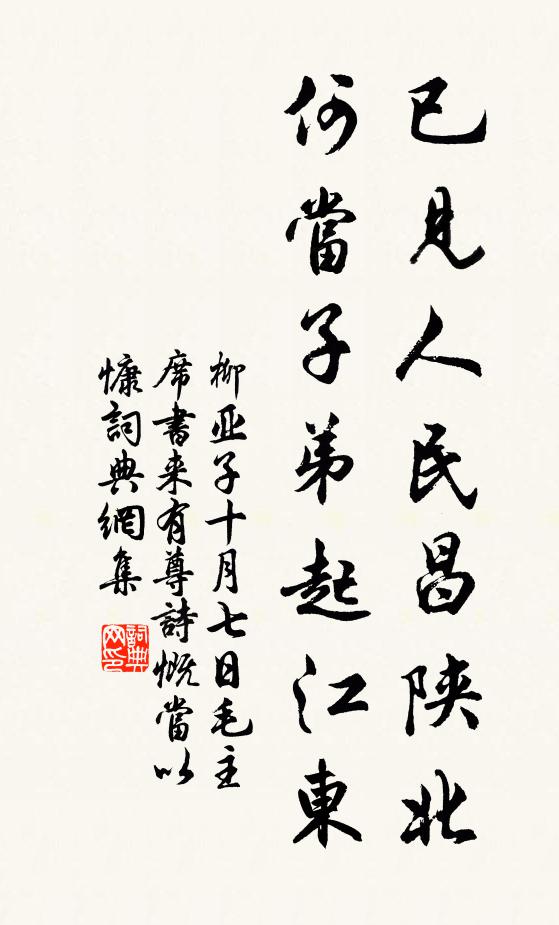 已見人民昌陝北
何當子弟起江東
柳亚子十月七日毛主
席書来有尊詩慨當以
慷詞典網集
詞典网印